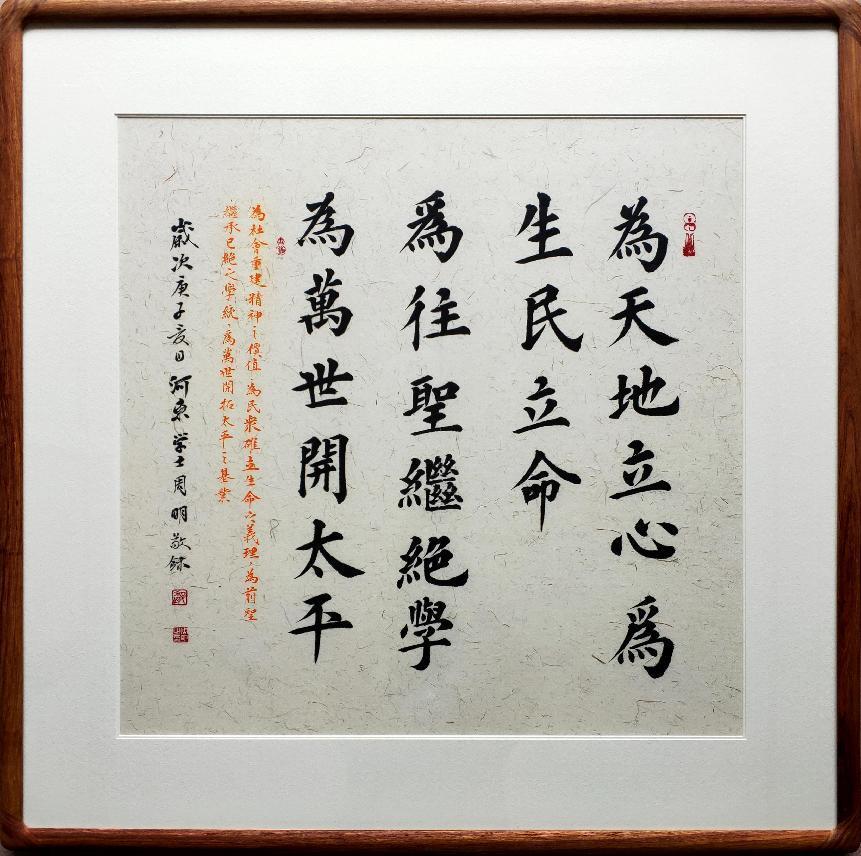 為天地立心為
生民立命
為往聖繼絕學
為萬世開太平
為社會重建精神之價值為民衆確立生命之義理為前聖
繼承已絕之學統為萬世開拓太平之基業
歲次庚子亥日河東学士周明敬